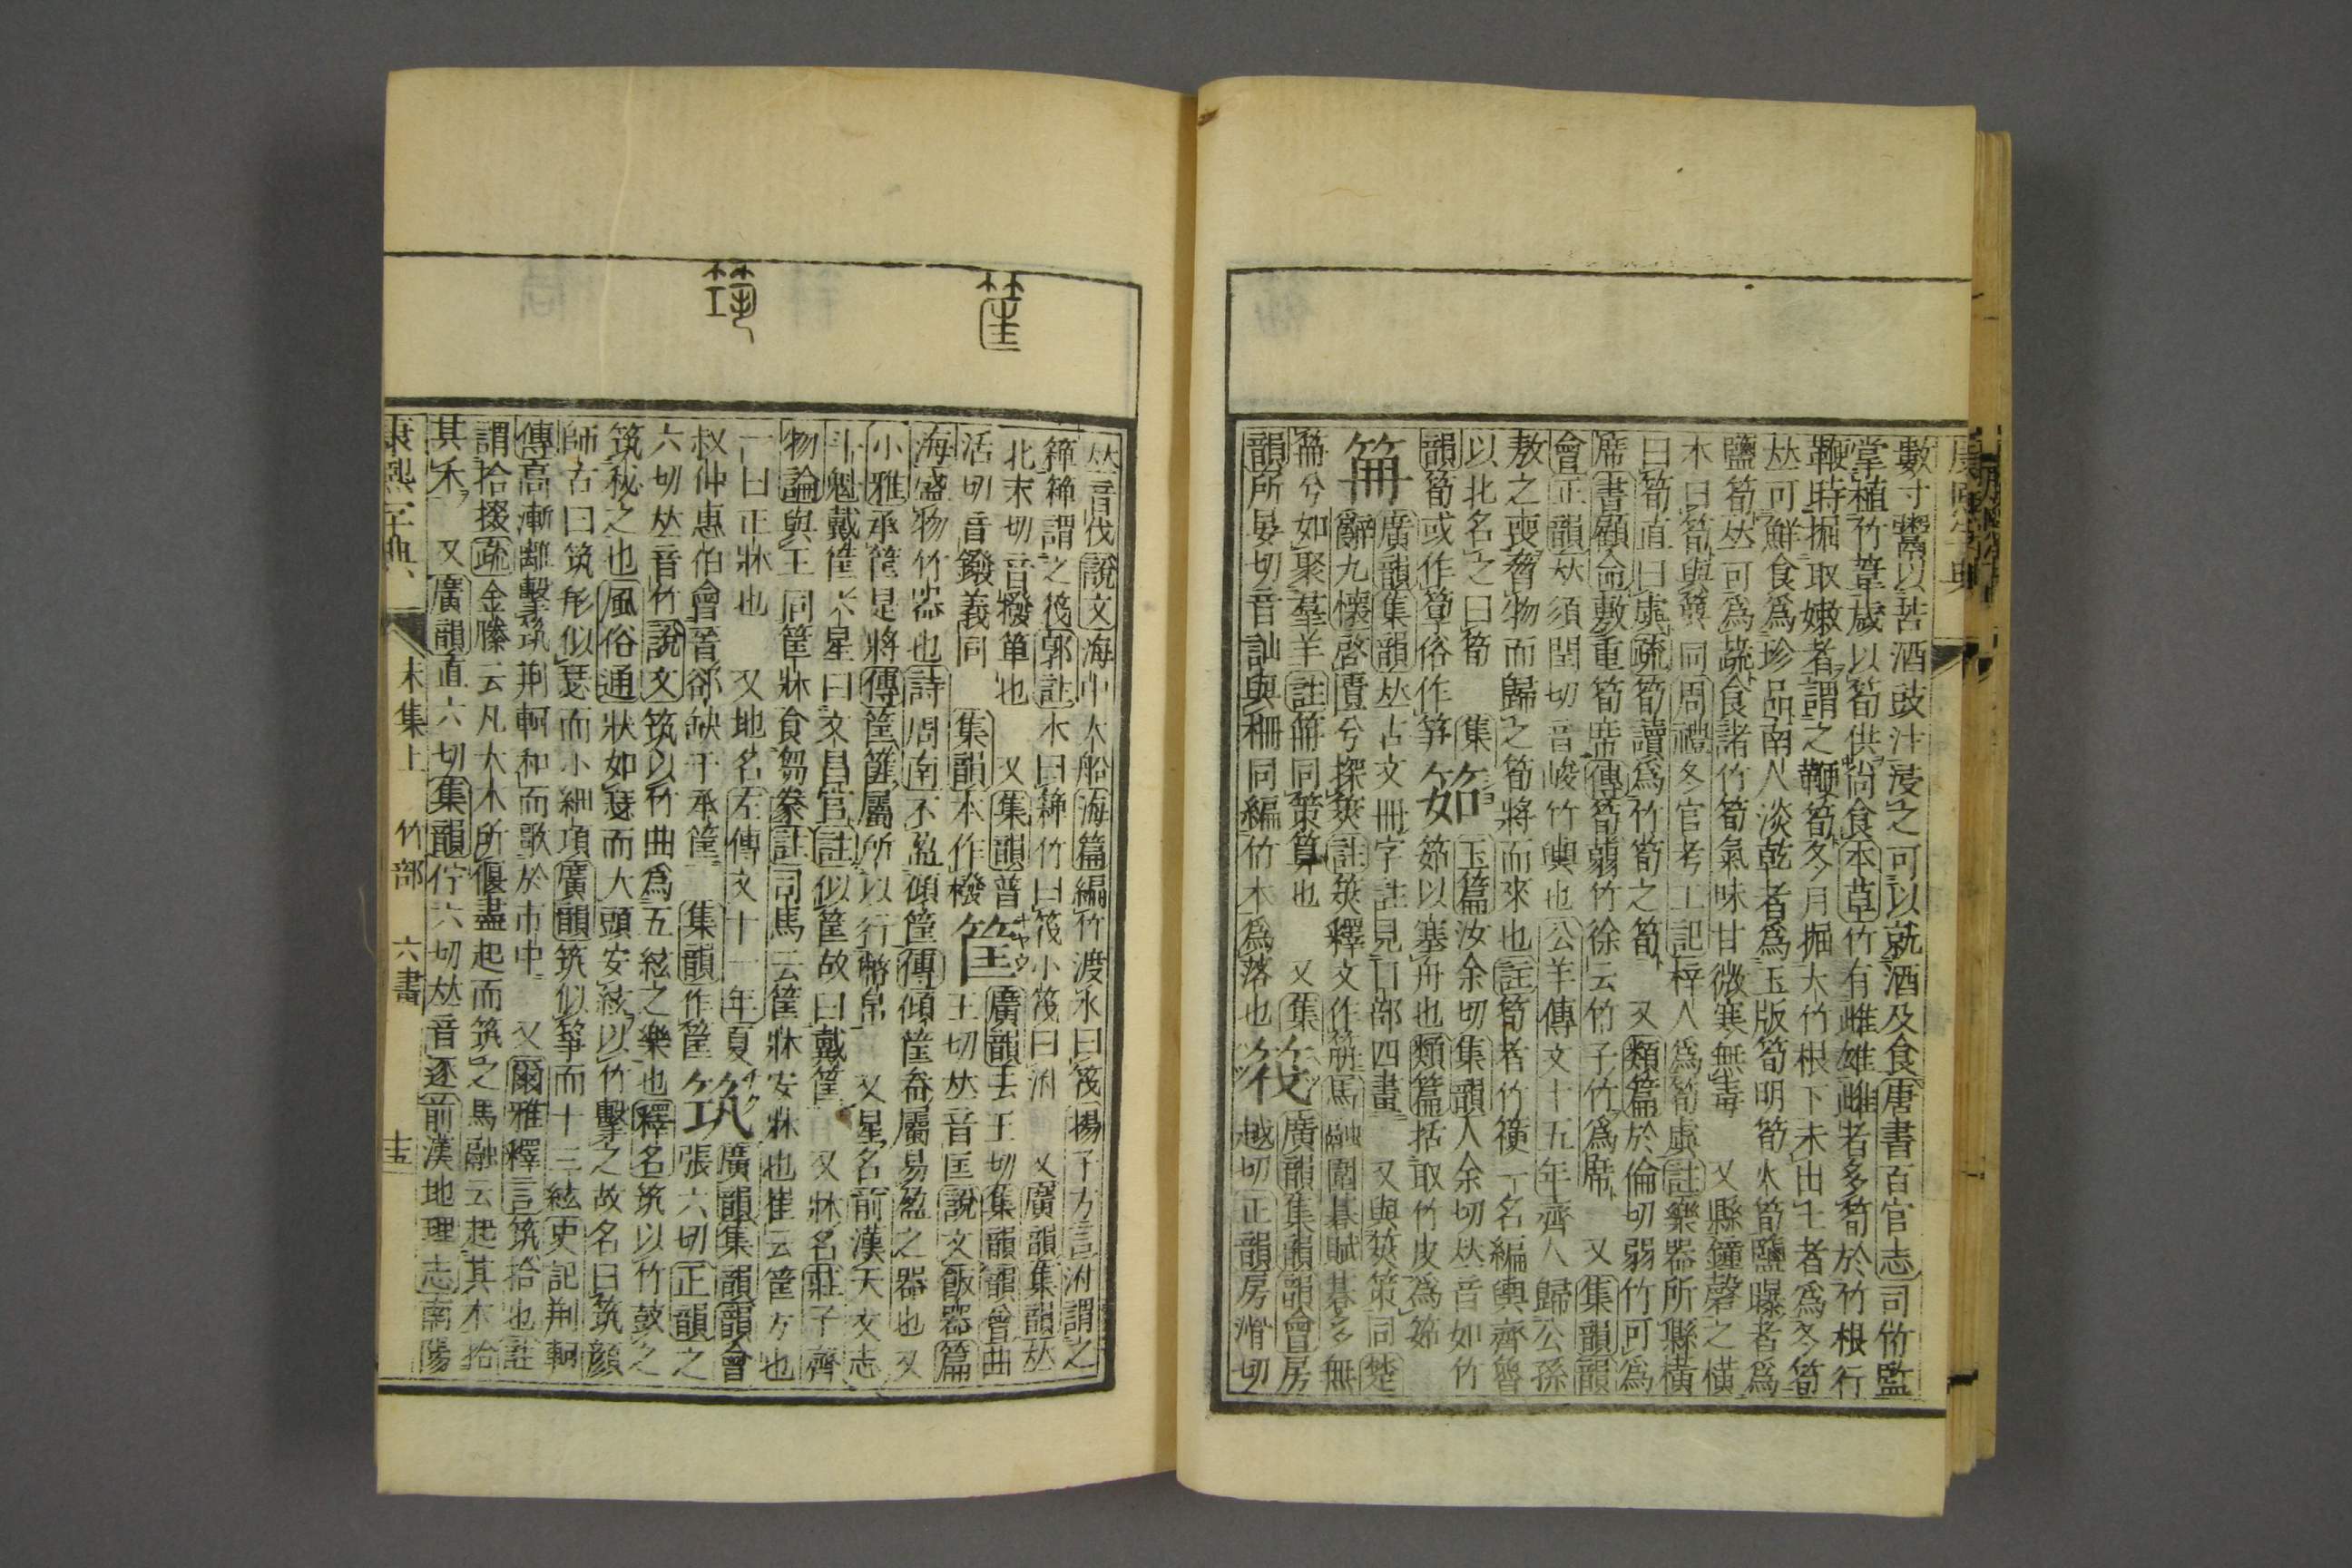 數寸䰞以苦酒豉汁浸之可以就酒及食唐書百官志司竹監
掌植竹葦歲以筍供尚食本草竹有雌雄雌者多筍於竹根行
鞭時掘取嫩者謂之鞭筍冬月掘大竹根下未出土者爲冬筍
𠀤可鮮食爲珍品南人淡乾者爲玉版筍明筍火筍鹽曝者爲
鹽筍𠀤可爲蔬食諸竹筍氣味甘微寒無毒 又縣鐘磬之橫
木曰筍與簨同周禮冬官考工記梓人爲筍虡註樂器所縣橫
曰筍直曰虡疏筍讀爲竹筍之筍 又類篇於倫切弱竹可爲
席書顧命敷重筍席傳筍蒻竹徐云竹子竹爲席 又集韻韻
會正韻𠀤須閏切音峻竹輿也公羊傳文十五年齊人歸公孫
敖之喪脅物而歸之筍將而來也註筍者竹箯一名編輿齊魯
以北名之曰筍 集韻筍或作筸俗作笋
筎 玉篇汝余切集韻人余切𠀤音如竹筎以塞舟也類篇括取竹皮爲筎
筩 廣韻集韻𠀤古文冊字註見冂部四畫 又與筴策同楚
辭九懷啓匱兮探筴註筴釋文作筩馬融圍棊賦棊多無
筩兮如聚羣羊註筩同策算也 又集韻所晏切音訕與柵同編竹木爲落也
筏 廣韻集韻韻會房越切正韻房滑切
𠀤音伐說文海中大船海篇編竹渡水曰筏揚子方言泭謂之
箄箄謂之筏郭註木曰箄竹曰筏小筏曰泭 又廣韻集韻𠀤
北末切音撥箄也 又集韻普活切音鏺義同 集韻本作橃
筐 廣韻去王切集韻韻會曲王切𠀤音匡說文飯器篇
海盛物竹器也詩周南不盈傾筐傳傾筐畚屬易盈之器也又
小雅承筐是將傳筐篚屬所以行幣帛 又星名前漢天文志
斗魁戴筐六星曰文昌宫註似筐故曰戴筐 又牀名莊子齊
物論與王同筐牀食芻豢註司馬云筐牀安牀也崔云筐方也
一曰正牀也 又地名左傳文十一年夏叔仲惠伯會晉郤缺于承筐 集韻作筺
筑 廣韻集韻韻會張六切正韻之六切𠀤音竹說文筑以竹曲爲五絃之樂也釋名筑以竹鼓之
筑柲之也風俗通狀如瑟而大頭安絃以竹擊之故名曰筑顔
師古曰筑形似瑟而小細項廣韻筑似箏而十三絃史記荆軻
傳高漸離擊筑荆軻和而歌於市中 又爾雅釋言筑拾也註
謂拾掇疏金縢云凡大木所偃盡起而筑之馬融云起其木拾
其禾 又廣韻直六切集韻佇六切𠀤音逐前漢地理志南陽
康熙字典 未集上 竹部 六畫 十五